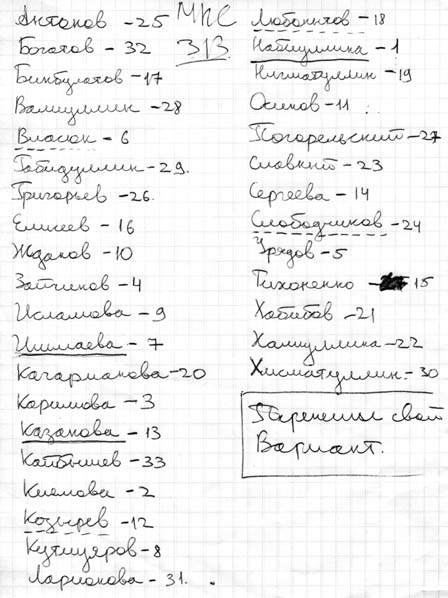 Антонов - 25
Богатов - 32
Бикбулатов - 17
Валиуллин - 28
Власюк - 6
Габидуллин - 29.
Григорьев - 26.
Елисеев - 16
Жданов - 10
Зайчиков - 4
Исламова - 9
Ишмаева - 7
Качарманова - 20
Каримова - 3
Казакова - 13
Кайбышев - 33
Киямова - 2
Козырев - 12
Кутияров - 8
Ларионова - 31.
МКС
313
- 18
Набиуллина - 1
Нигматуллин - 19
Осипов - 11
Погарельский - 27
Славкин - 23
Сергеева - 14
Слободчиков - 24
Урядов - 5
Тихоненко - 15
Хабибов - 21
Хамуллина - 22
Хисматуллин - 30
свой
Вариант.